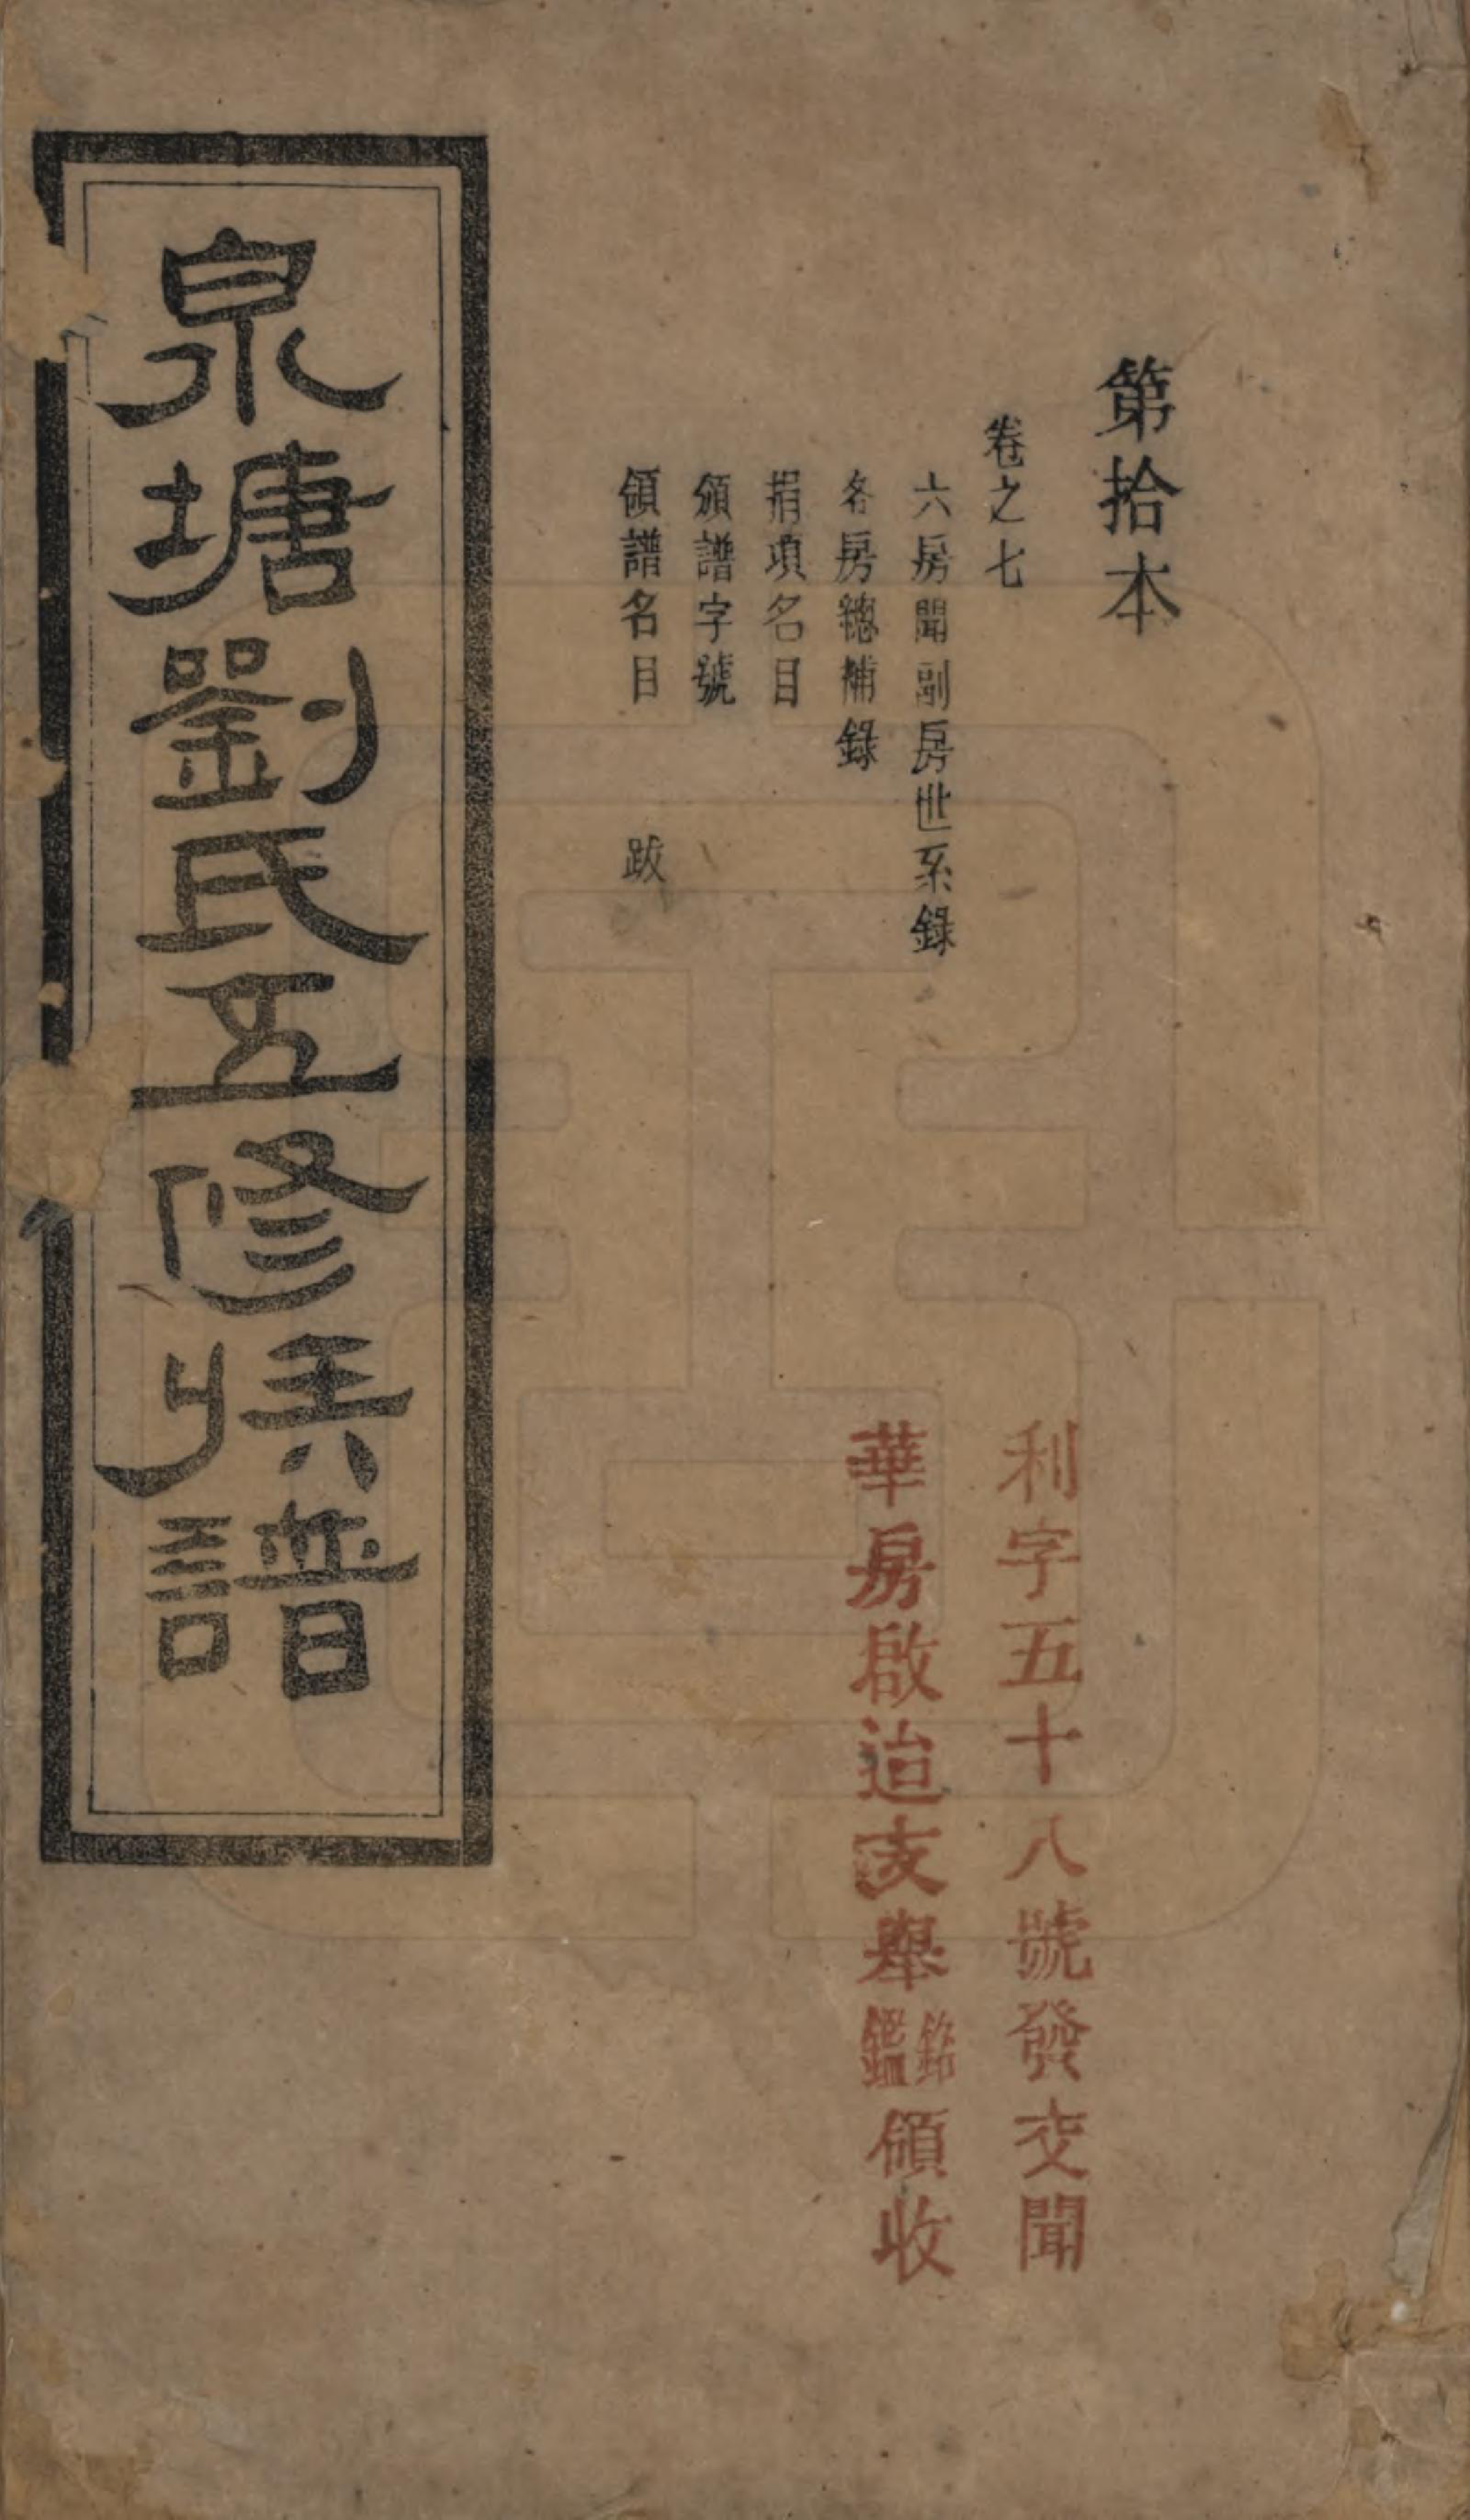 第拾本
卷之七
六房聞副房世系錄
各房總補錄
捐項名目
頒譜字號
領譜名目 跋
利字五十八號發交聞
華房啟迨支舉銘鑑領收
泉塘劉氏五修族譜